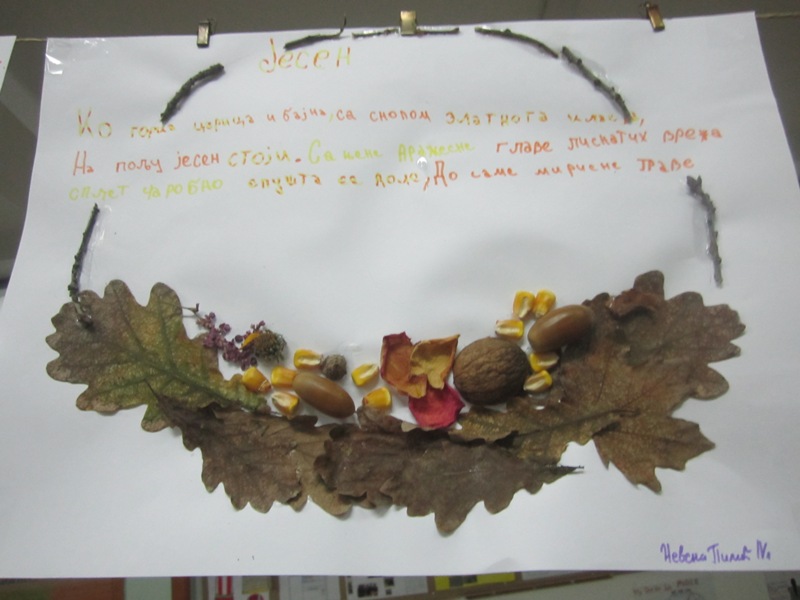 Јесен
Ко горда царица и бајна, са снопом златнога класја,
На пољу јесен стоји. Са њене дражесне главе лиснатих врежа
сплет чаробно спушта се доле, До саме мирисне траве
Невена Пилић IV1